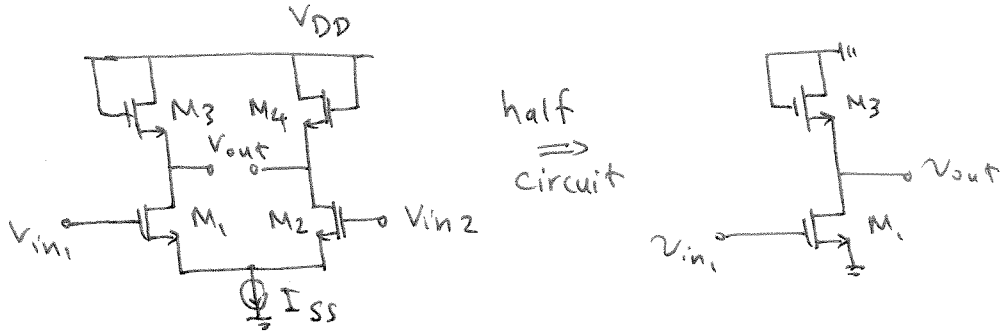 VDD
M3 M4
Vout
Vin1 M1 M2 Vin2
ISS
half
circuit
M3
vout
vin1 M1